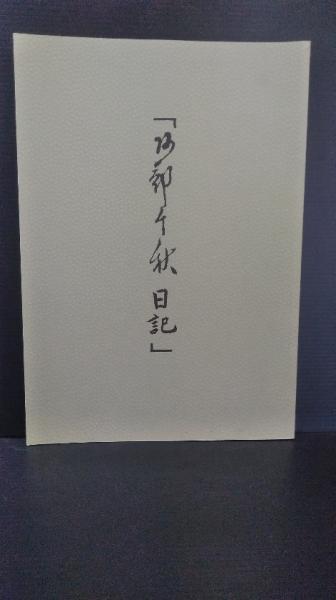 「阿部千秋日記」